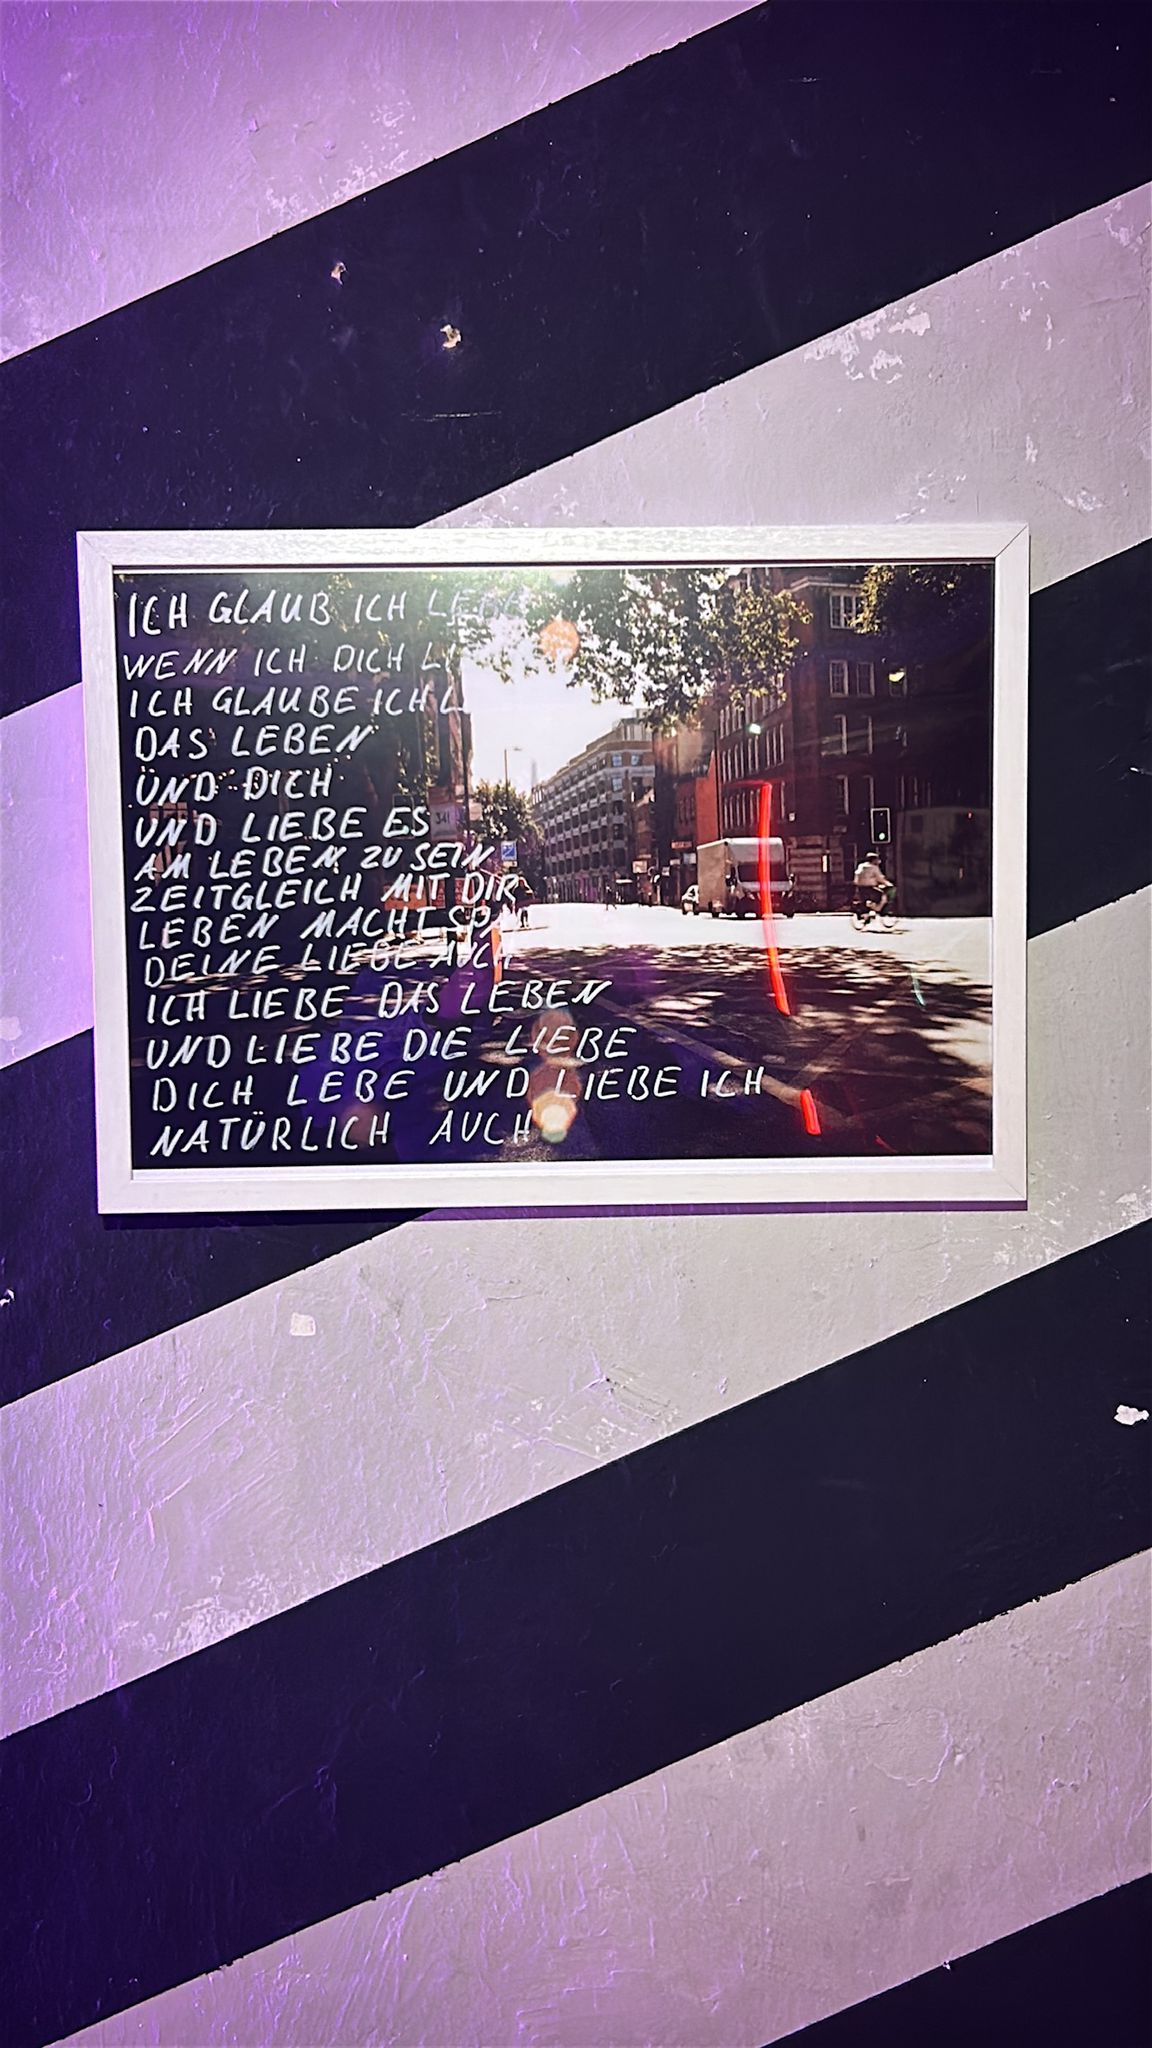 ICH GLAUB ICH LEBE
WENN ICH DICH
ICH GLAUBE ICH
DAS LEBEN
UND DICH
UND LIEBE ES
AM LEBEN ZU SEIN
ZEITGLEICH MIT DIR
LEBEN MACHT
DEINE LIEBE AUCH
ICH LIEBE DAS LEBEN
UND LIEBE DIE LIEBE
DICH LEBE UND LIEBE ICH
NATÜRLICH AUCH
341